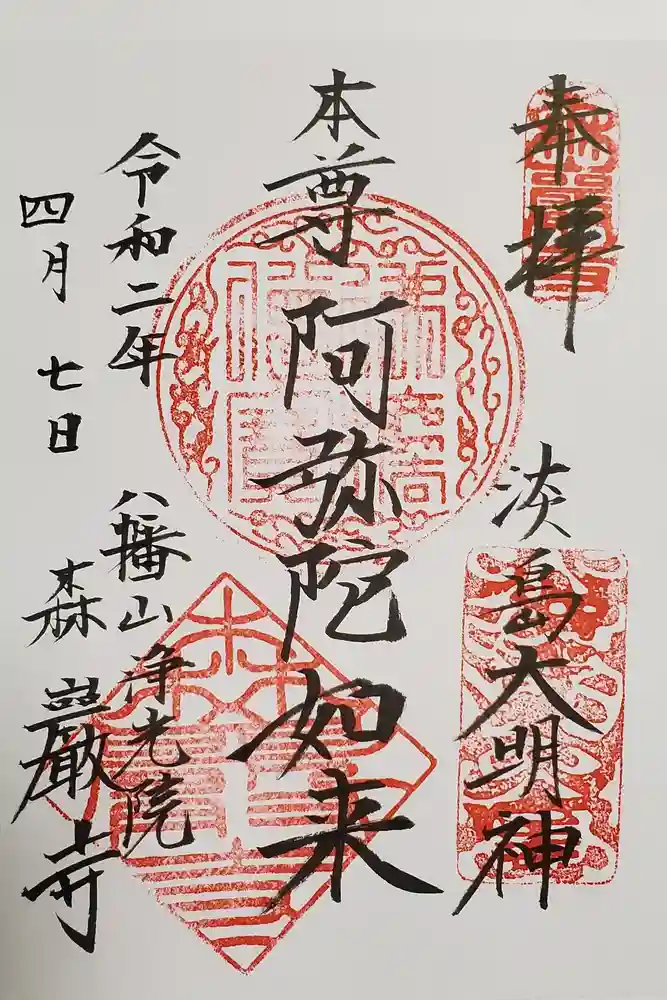 奉拝
淡島大明神
本尊阿弥陀如来
令和二年
四月七日
八幡山浄光院
森巖寺